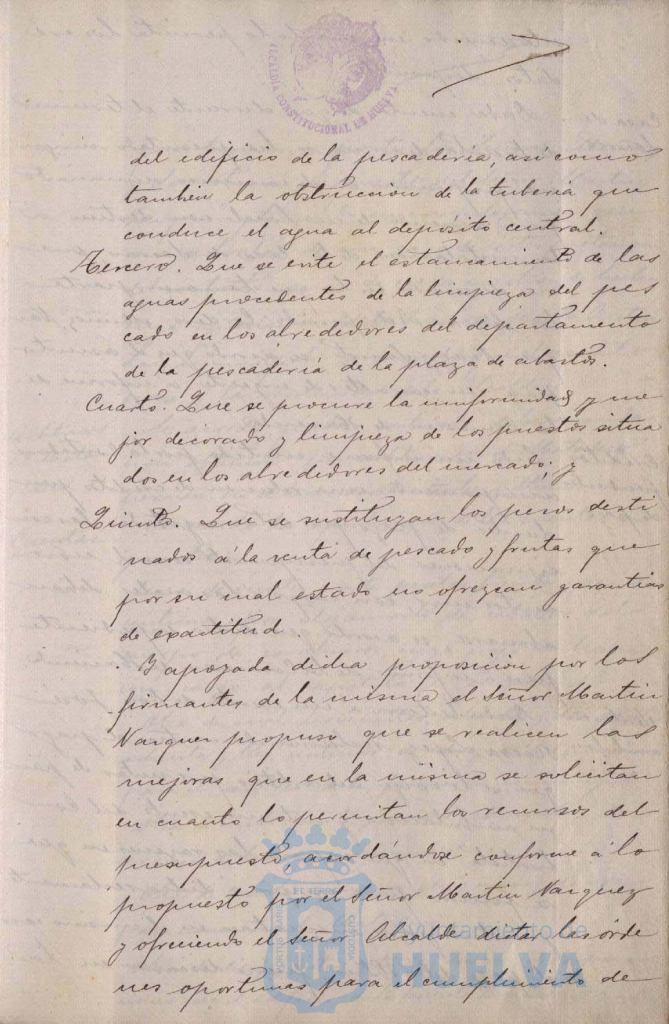 ALCALDIA CONSTITUCIONAL DE HUELVA
del edificio de la pescaderia, asi como
tambien la obstruccion de la tuberia que
conduce el agua al depósito central.
Tercero. Que se evite el estancamiento de las
aguas procedentes de la limpieza del pes
cado en los alrededores del departamento
de la pescaderia de la plaza de abastos.
Cuarto. Que se procure la uniformidad y me
jor decorado y limpieza de los puestos situa
dos en los alrededores del mercado; y
Quinto. Que se sustituyan los pesos desti
nados á la venta de pescado y frutas que
por su mal estado no ofrezcan garantias
de exactitud.
Y apoyada dicha proposición por los
firmantes de la misma el Señor Martin
Vazquez propuso que se realicen las
mejoras que en la misma se solicitan
en cuanto lo permitan los recursos del
presupuesto, acordándose conforme á lo
propuesto por el Señor Martin Vazquez
y ofreciendo el Señor Alcalde dictar las órde
nes oportunas para el cumplimiento de
Ayuntamiento de
HUELVA